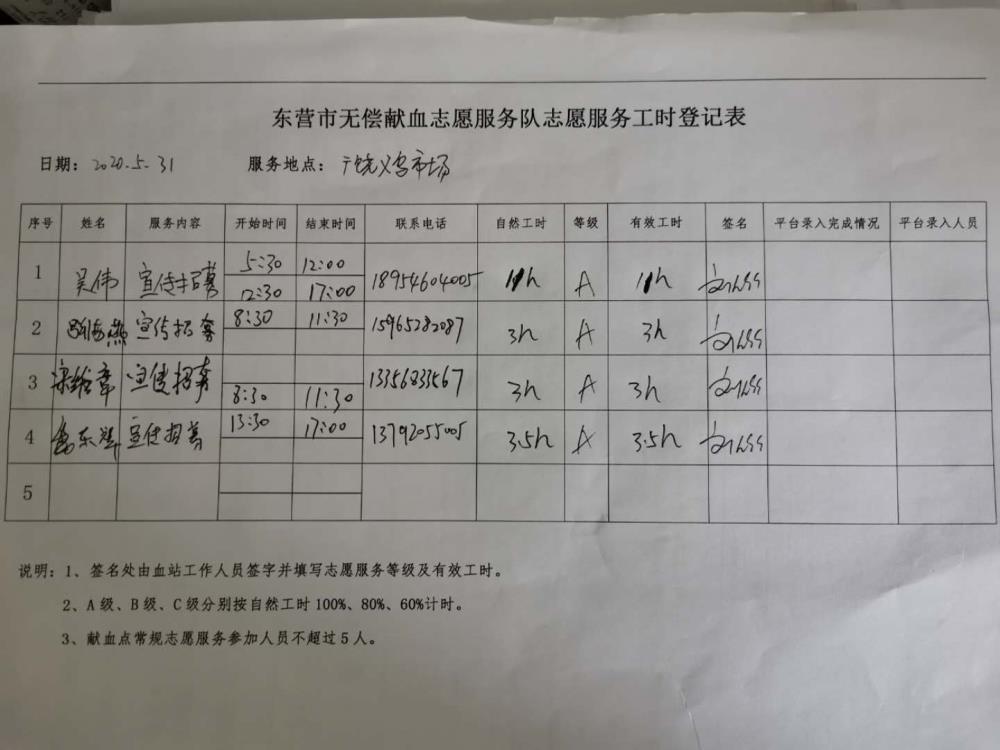 东营市无偿献血志愿服务队志愿服务工时登记表
日期： 2020.5.31 服务地点： 广饶义乌市场
序号 姓名 服务内容 开始时间 结束时间 联系电话 自然工时 等级 有效工时 签名 平台录入完成情况 平台录入人员
1 吴伟 宣传招募 5:30 12:00 18954604005 11h A 11h
12:30 17:00
2 宣传招募 8:30 11:30 15965282087 3h A 3h
3 宣传招募 8:30 11:30 13356833567 3h A 3h
4 宣传招募 13:30 17:00 13792055005 3.5h A 3.5h
5
说明：1、签名处由血站工作人员签字并填写志愿服务等级及有效工时。
2、A级、B级、C级分别按自然工时100%、80%、60%计时。
3、献血点常规志愿服务参加人员不超过5人。